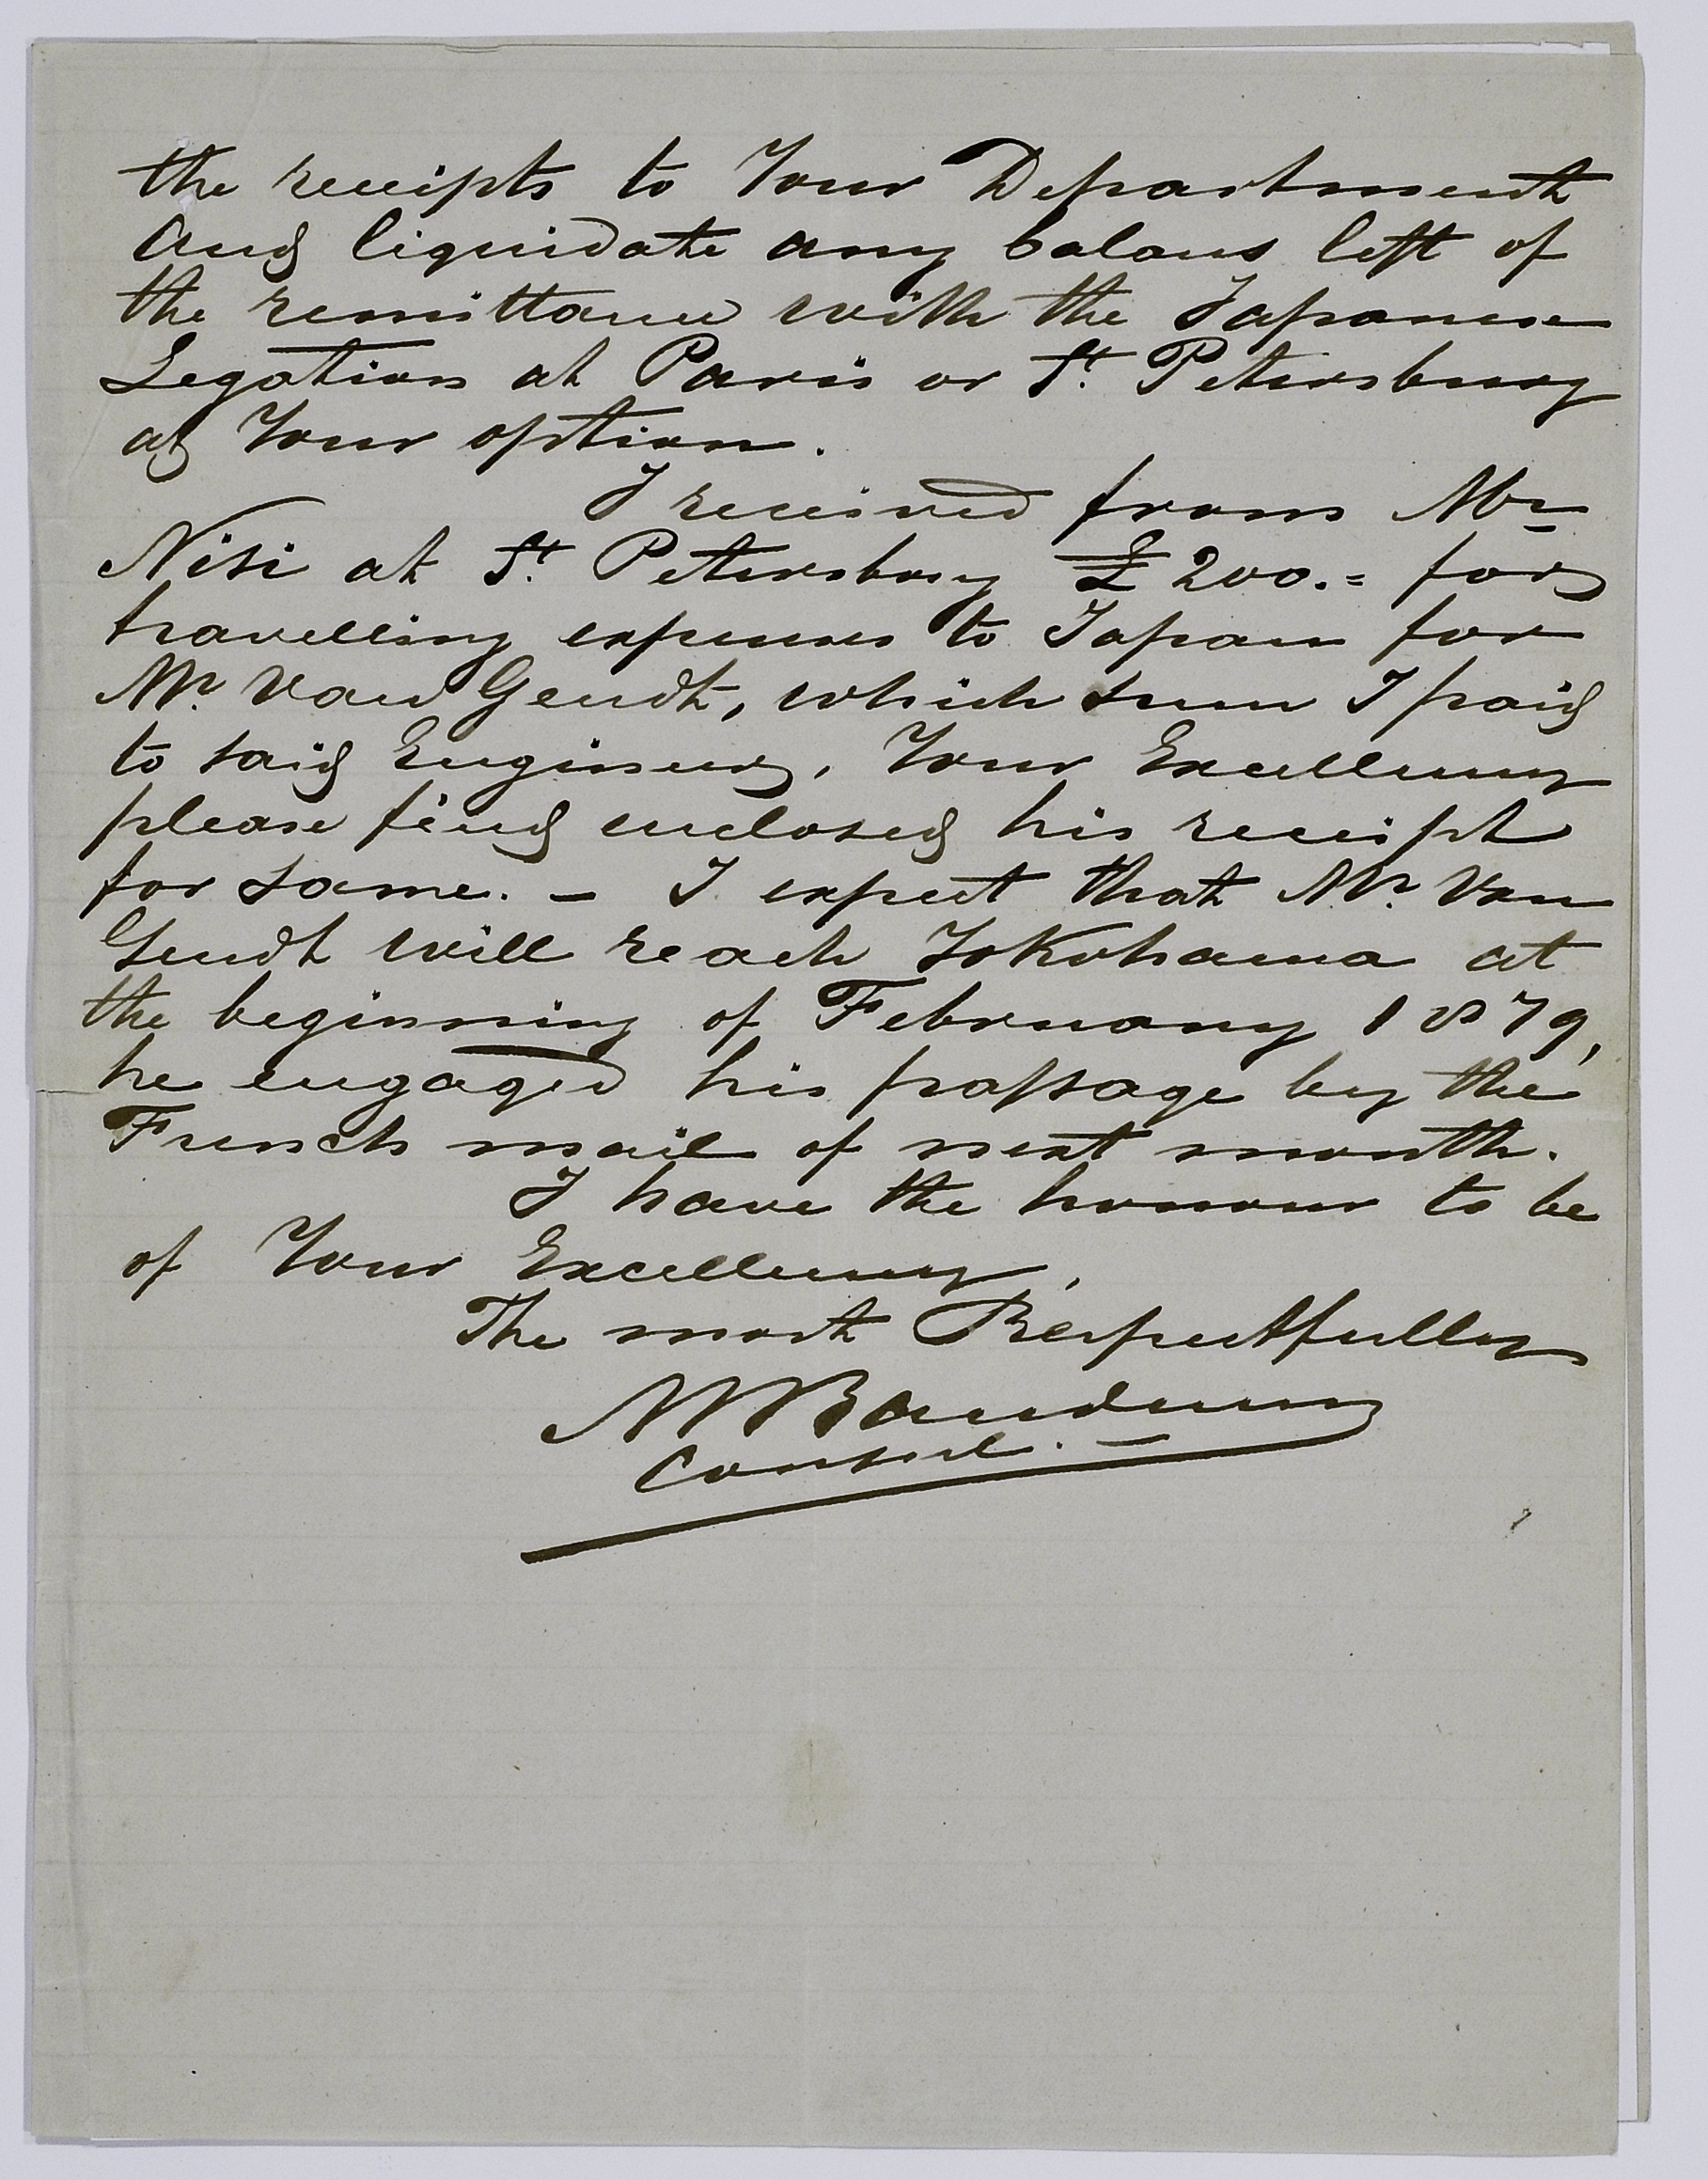 the receipts to Your Department
and liquidate any balans left of
the remittance with the Japanese
Legation at Paris or St. Petersburg
at Your option.
I received from Mr
Nisi at St. Petersburg £ 200.= for
travelling expenses to Japan for
Mr. Van Gendt, which sum I paid
to said Engineer, Your Excellency
please find enclosed his receipt
for same. – I expect that Mr. Van
Gendt will reach Yokohama at
the beginning of February 1879,
he engaged his passage by the
French mail of next month.
I have the honour to be
of Your Excellency,
The most Respectfully
Bauduin
Consul. –